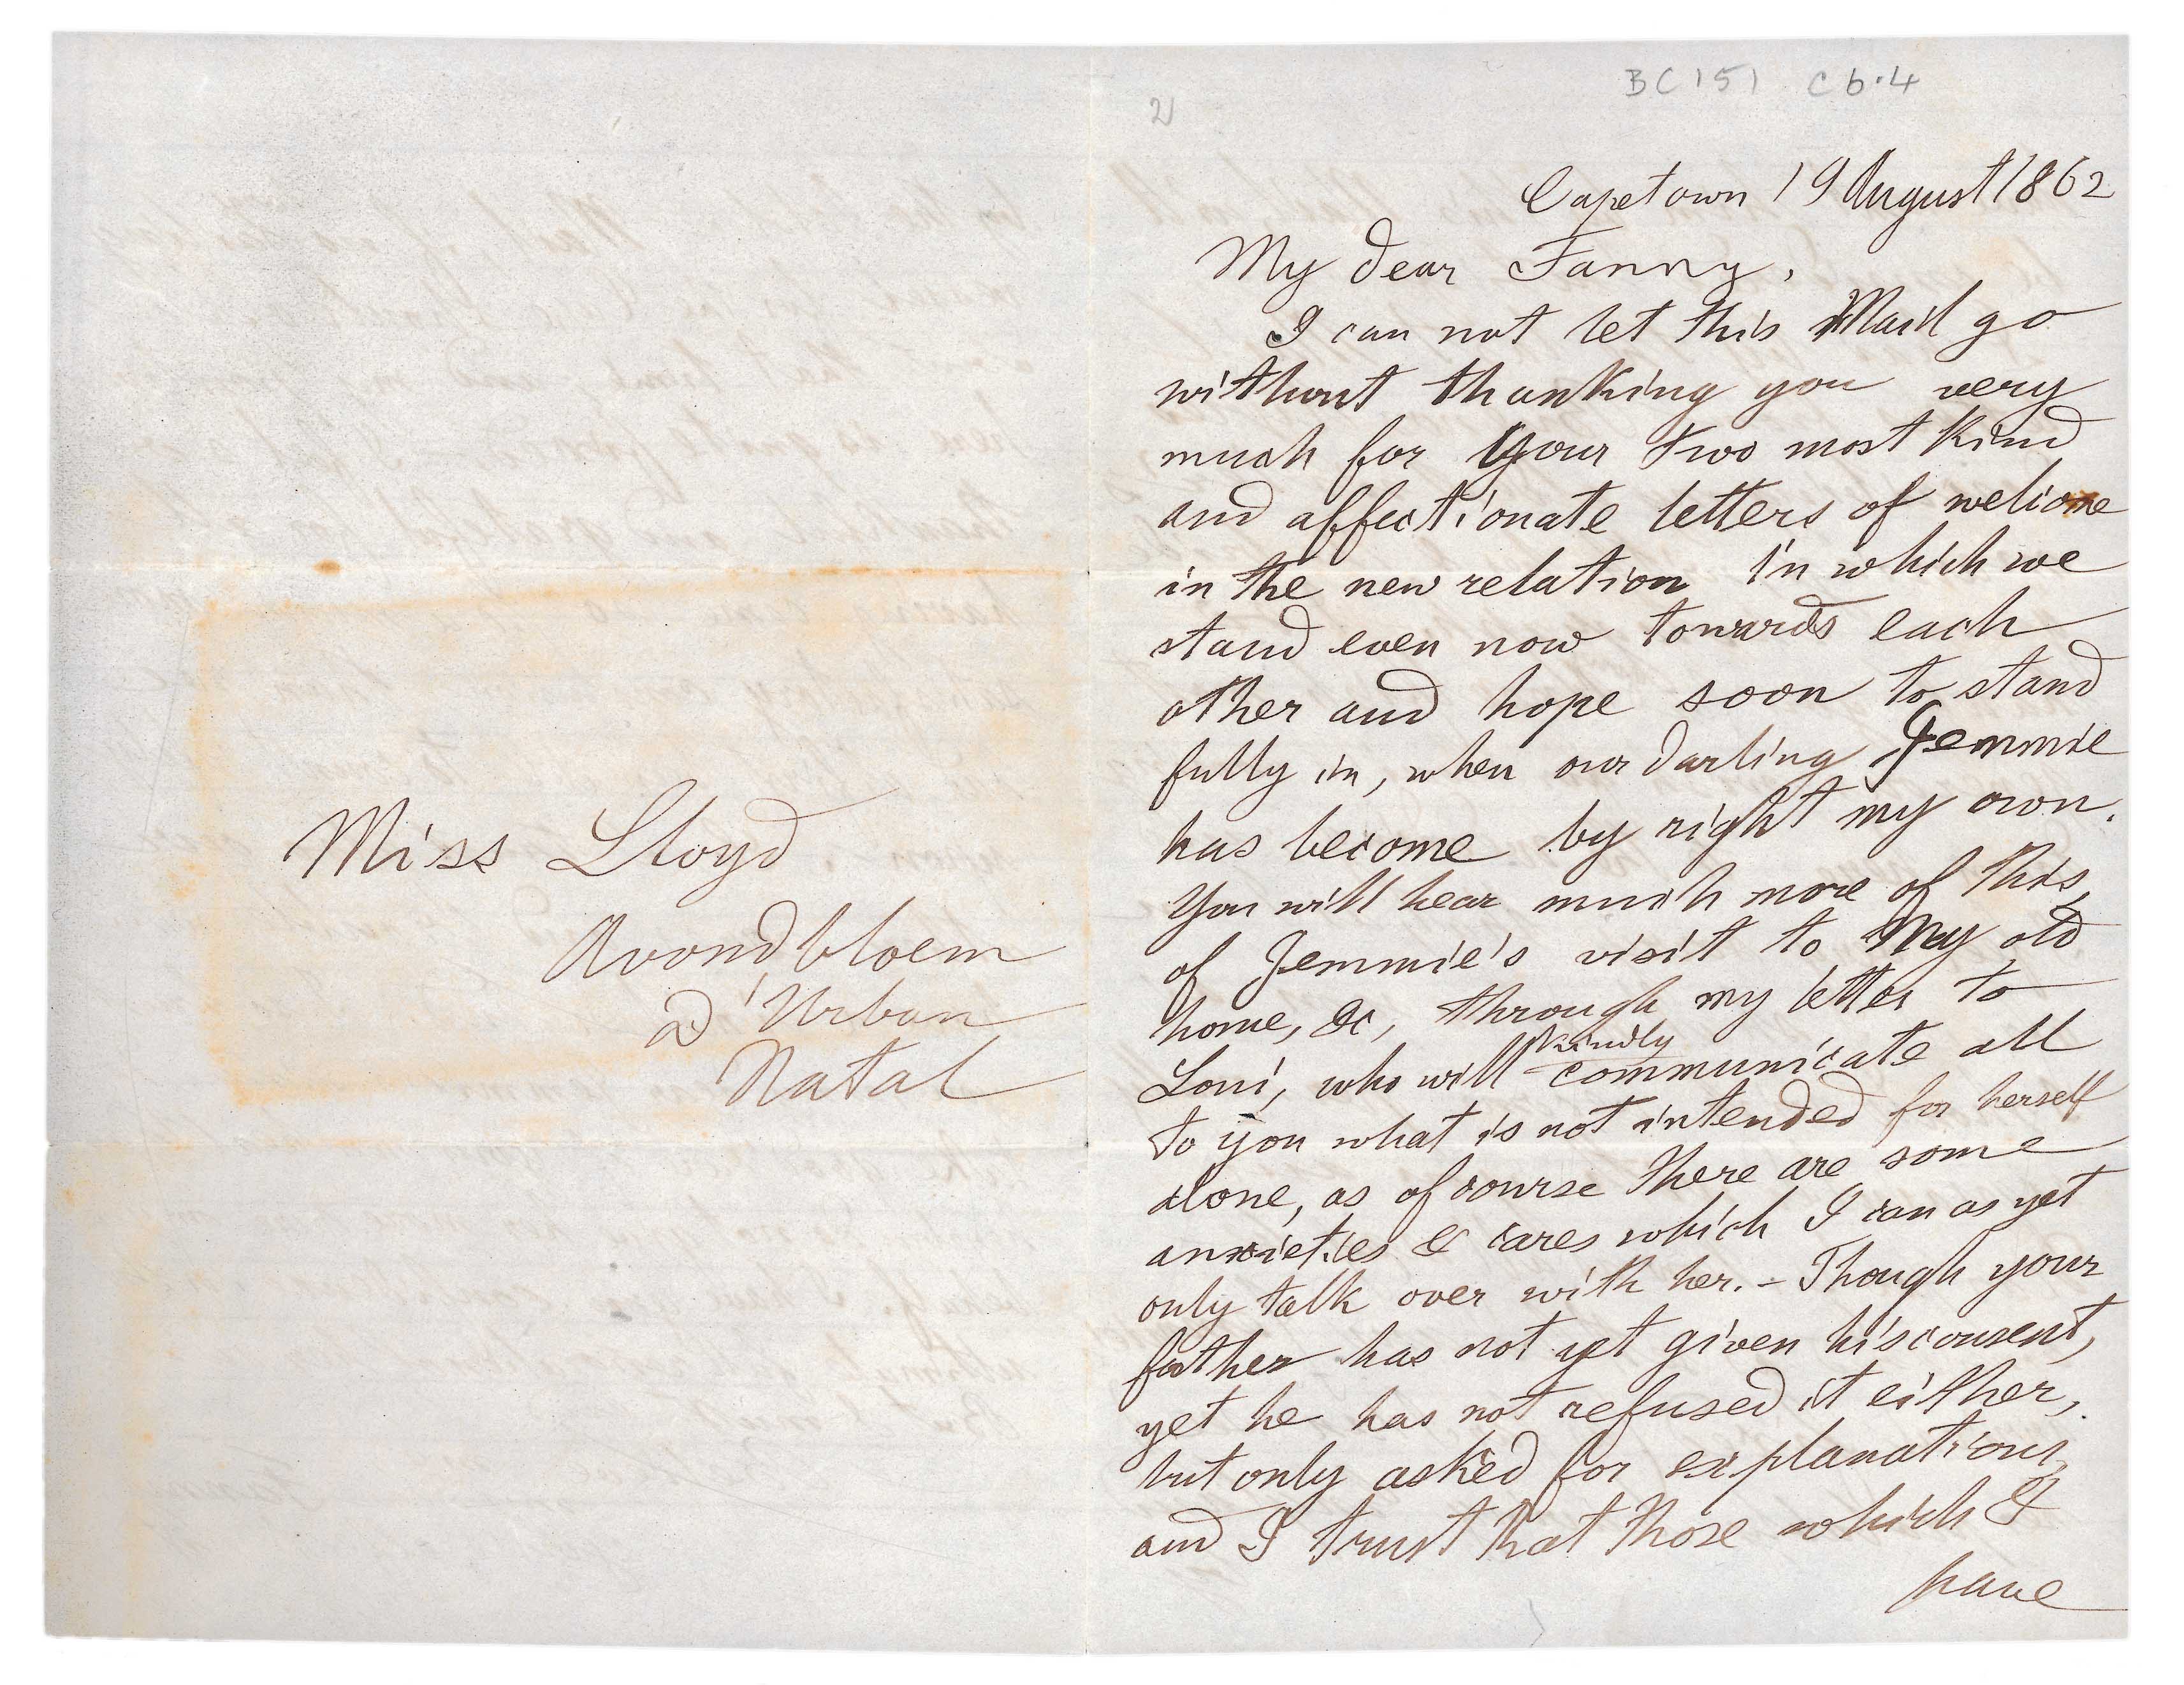 Miss Lloyd
Avondbloem
D'Urban
Natal
2
BC151 C6.4
Capetown 19 August 1862
My dear Fanny,
I can not let this Mail go
without thanking you very
much for your two most kind
and affectionate letters of welcome
in the new relation in which we
stand even now towards each
other and hope soon to stand
fully in, when our darling Jemmie
has become by right my own.
You will hear much more of this,
of Jemmie's visit to my old
home, &c, through my letter to
Loui, who will kindly communicate all
to you what is not intended for herself
alone, as of course there are some
anxieties & cares which I can as yet
only talk over with her. - Though your
father has not yet given his consent,
yet he has not refused it either,
but only asked for explanations,
and I trust that those which I
have